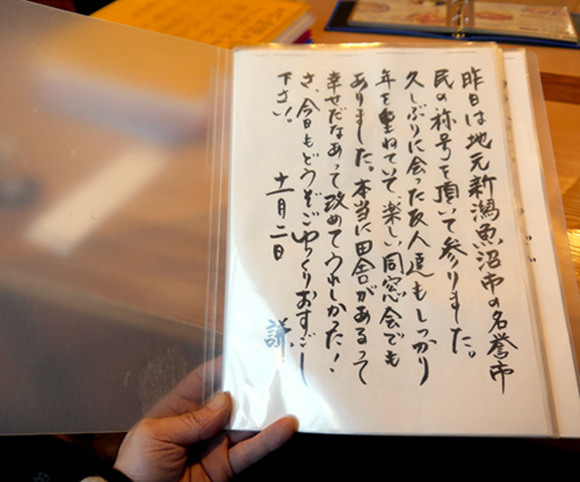 昨日は地元新潟魚沼市の名誉市
民の称号を頂いて参りました。
久しぶりに会った友人達もしっかり
年を重ねていて、楽しい同窓会でも
ありました。本当に田舎があるって
幸せだなあって改めてうれしかった!
さ、今日もどうぞごゆっくりおすごし
下さい。
十一月二日
謙